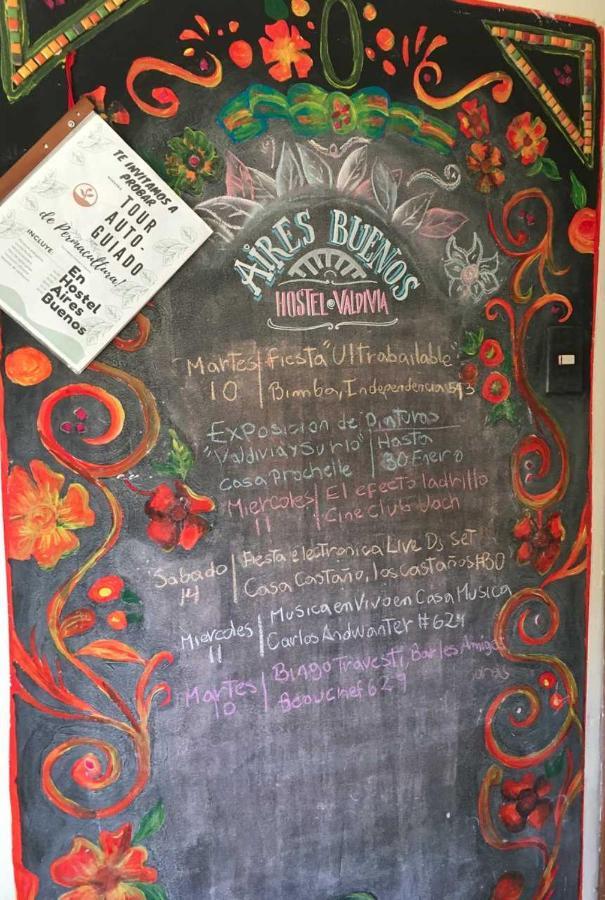 TE INVITAMOS A
PROBAR
TOUR
AUTO-
GUIADO
de Permacultura!
INCLUYE:
En
Hostel
Aires
Buenos
AIRES BUENOS
HOSTEL VALDIVIA
Martes 10 | Fiesta "Ultrabailable"
Bimba, Independencia 593
Exposicion de Pinturas
"Valdivia y Su rio" | Hasta
Casa Prochelle | 30 Enero
Miercoles 11 | El efecto ladrillo
Cine Club Uach
Sabado 14 | Fiesta electronica Live Djs Set
Casa Castaño, los castaños #30
Miercoles 11 | Musica en Vivo en Casa Musica
Carlos Andwanter # 624
Martes 10 | Bingo Travesti, Bar les Amigas
Beauchef 629